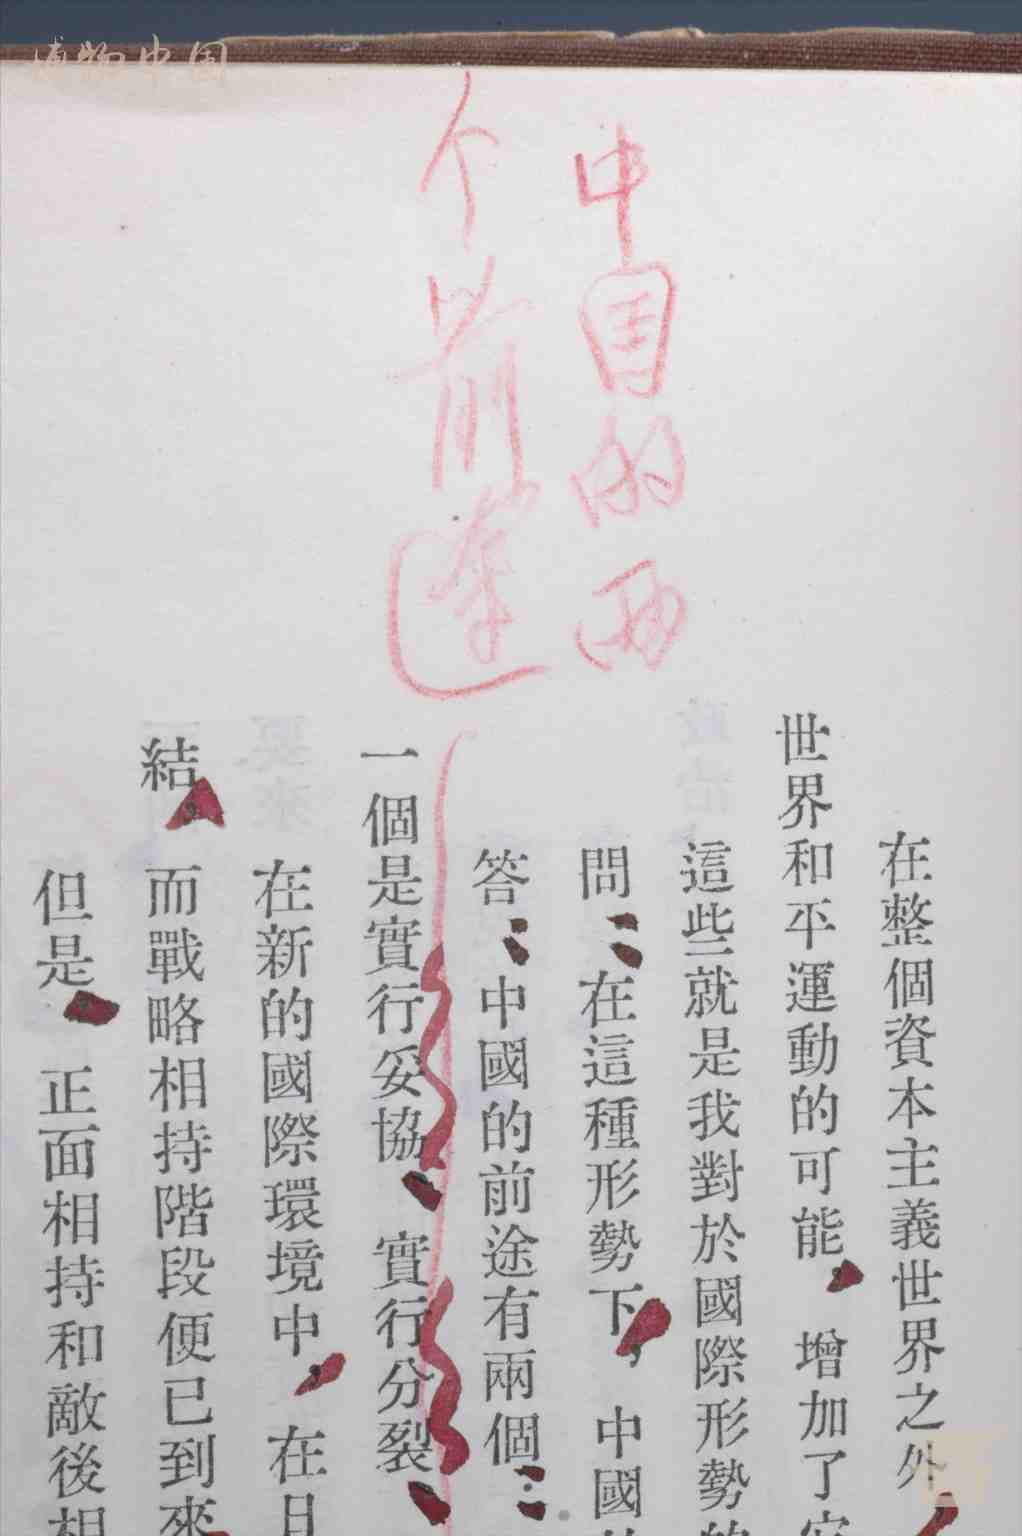 博物中国
中国的两
个前途
在整個資本主義世界之外，
世界和平運動的可能，增加了
這些就是我對於國際形勢的
問：在這種形勢下，中國
答：中國的前途有兩個：
一個是實行妥協、實行分裂、
在新的國際環境中，在日
結，而戰略相持階段便已到來
但是，正面相持和敵後相